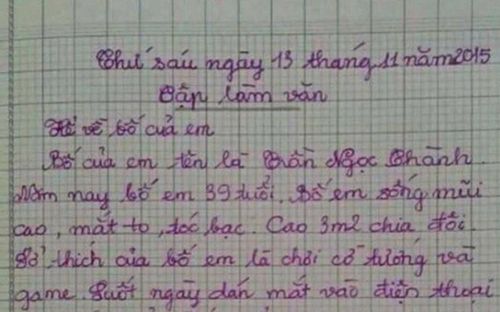 Thứ sáu ngày 13 tháng 11 năm 2015
Tập làm văn
Tả về bố của em
Bố của em tên là Trần Ngọc Thành.
Năm nay bố em 39 tuổi. Bố em sống mũi
cao, mắt to, tóc bạc. Cao 3m2 chia đôi.
Sở thích của bố em là chơi cờ tướng và
game. Suốt ngày dán mắt vào điện thoại